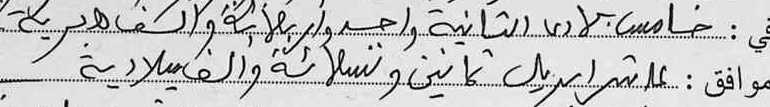 في : خامس جمادى الثانية واحد وأربعمائة والف هجرية
موافق : عاشر ابريل ثمانين وتسعمائة والف ميلادية